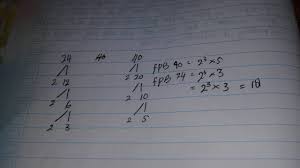 24 40 40
2 12 2 20 FPB 40 = 2³ × 5
2 6 2 10 FPB 24 = 2³ × 3
2 3 2 5 = 2³ × 3 = 18